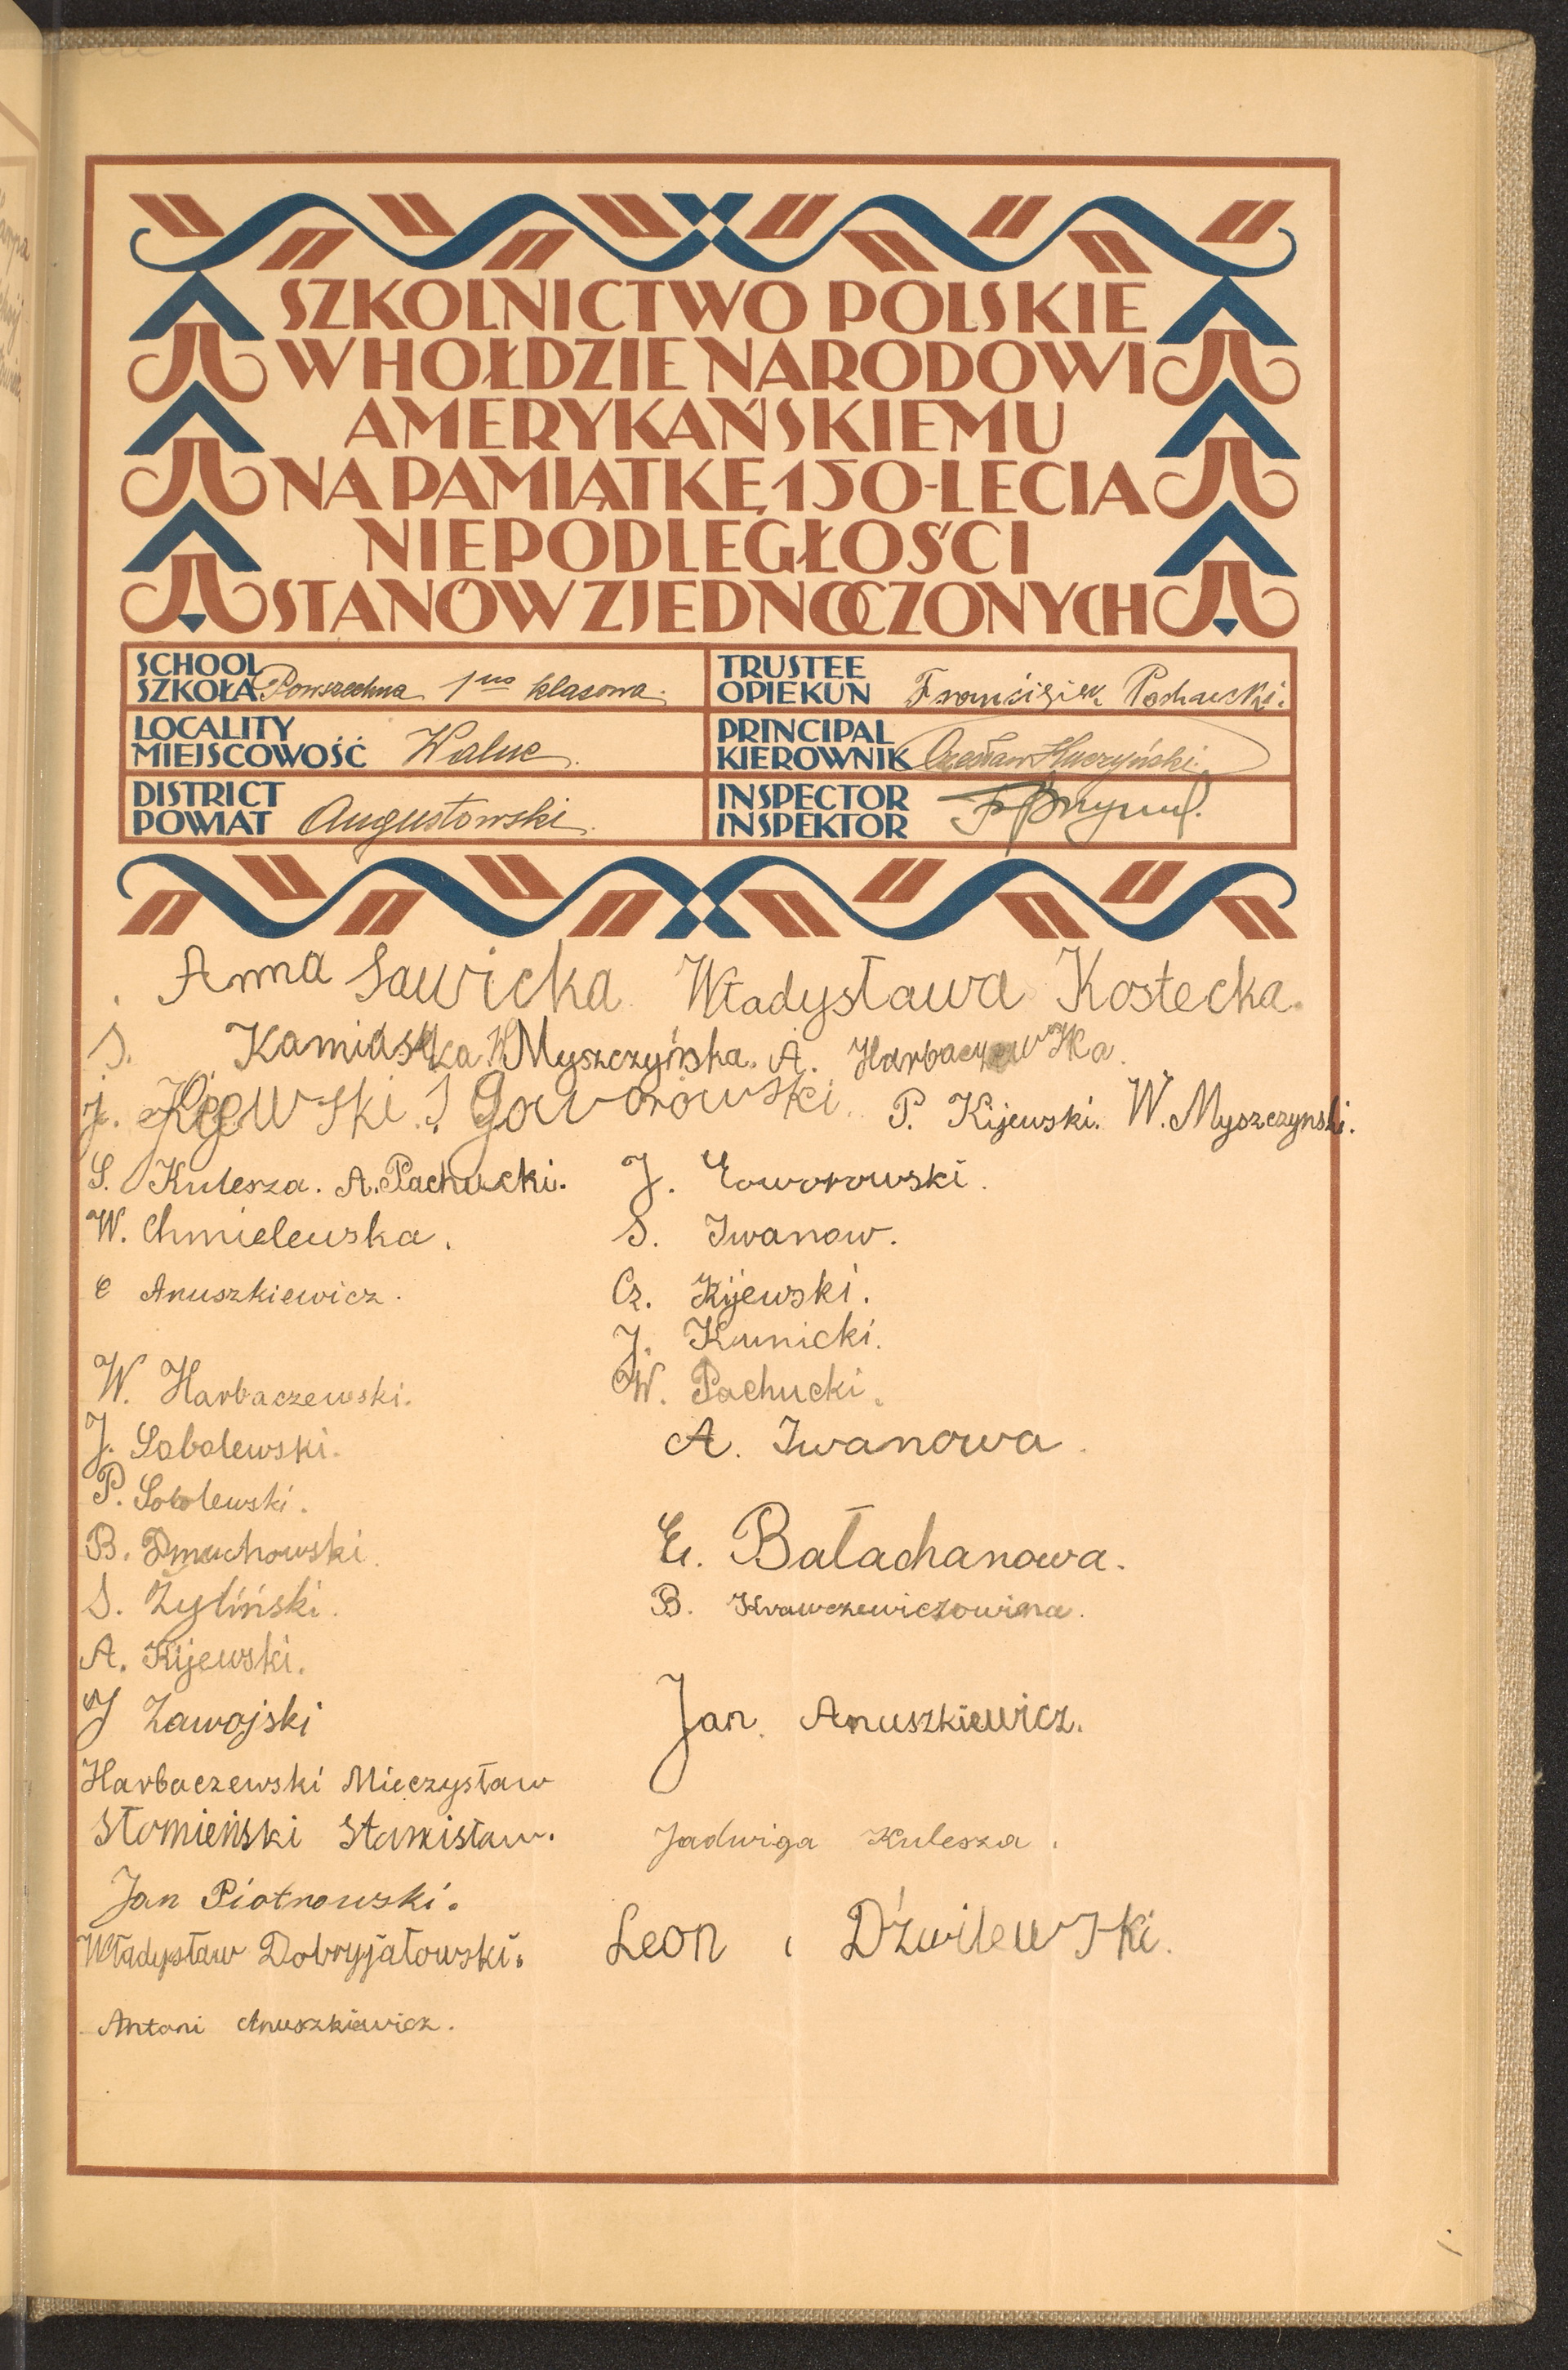 SZKOLNICTWO POLSKIE
W HOŁDZIE NARODOWI
AMERYKAŃSKIEMU
NA PAMIĄTKĘ 150-LECIA
NIEPODLEGŁOŚCI
STANÓW ZJEDNOCZONYCH
SCHOOL
SZKOŁA Powszechna 1no klasowa.
TRUSTEE
OPIEKUN Franciszek Pachucki.
LOCALITY
MIEJSCOWOŚĆ Walne.
PRINCIPAL
KIEROWNIK Czesław Huczyński.
DISTRICT
POWIAT Augustowski.
INSPECTOR
INSPEKTOR
Anna Sawicka. Władysława Kostecka.
S. Kamińska. W Myszczyńska. A. Harbaczewska.
J. Kijewski. S Goworowski. P. Kijewski. W. Myszczynski.
S. Kulesza. A. Pachucki. J. Goworowski.
W. Chmielewska. S. Iwanow.
C Anuszkiewicz. Cz. Kijewski.
J. Kunicki.
W. Harbaczewski. W. Pachucki.
J. Sobolewski. A. Iwanowa.
P. Sobolewski.
B. Dmuchowski. E. Bałachanowa.
S. Żyliński. B. Krawczewiczowina.
A. Kijewski.
J Zawojski Jan Anuszkiewicz.
Harbaczewski Mieczysław
Słomieński Stanisław. Jadwiga Kulesza.
Jan Piotrowski.
Władysław Dobryjałowski. Leon Dźwilewski.
Antoni Anuszkiewicz.